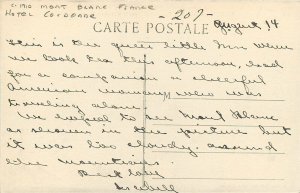 C-1910 MONT BLANC FRANCE
HOTEL CORDONNE
-207-
CARTE POSTALE
August 14
This is the queer little Inn where
we took tea this afternoon, had
for a companion a cheerful
American woman who was
traveling alone.
We hoped to see Mont Blanc
as shown in the picture but
it was too cloudy around
the mountains.
Best love